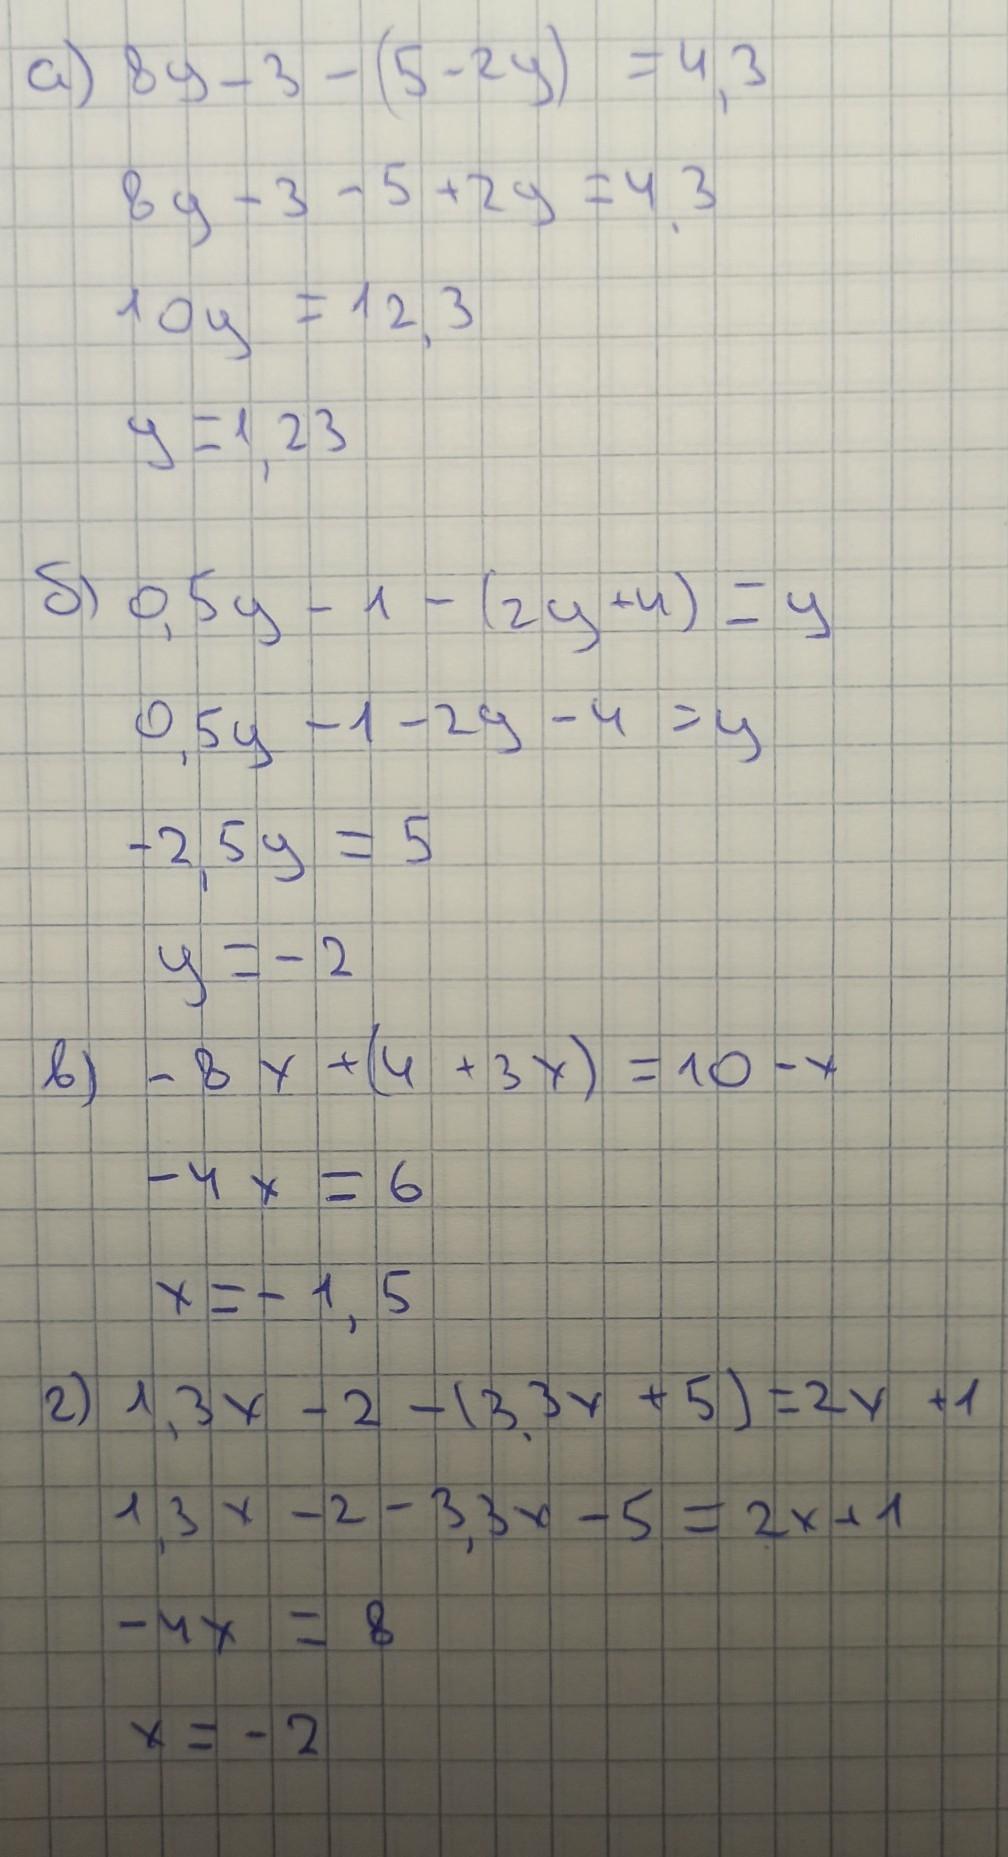 а) 8y - 3 - (5 - 2y) = 4,3
8y - 3 - 5 + 2y = 4,3
10y = 12,3
y = 1,23
б) 0,5y - 1 - (2y + 4) = y
0,5y - 1 - 2y - 4 = y
-2,5y = 5
y = -2
в) -8x + (4 + 3x) = 10 - x
-4x = 6
x = -1,5
г) 1,3x - 2 - (3,3x + 5) = 2x + 1
1,3x - 2 - 3,3x - 5 = 2x + 1
-4x = 8
x = -2